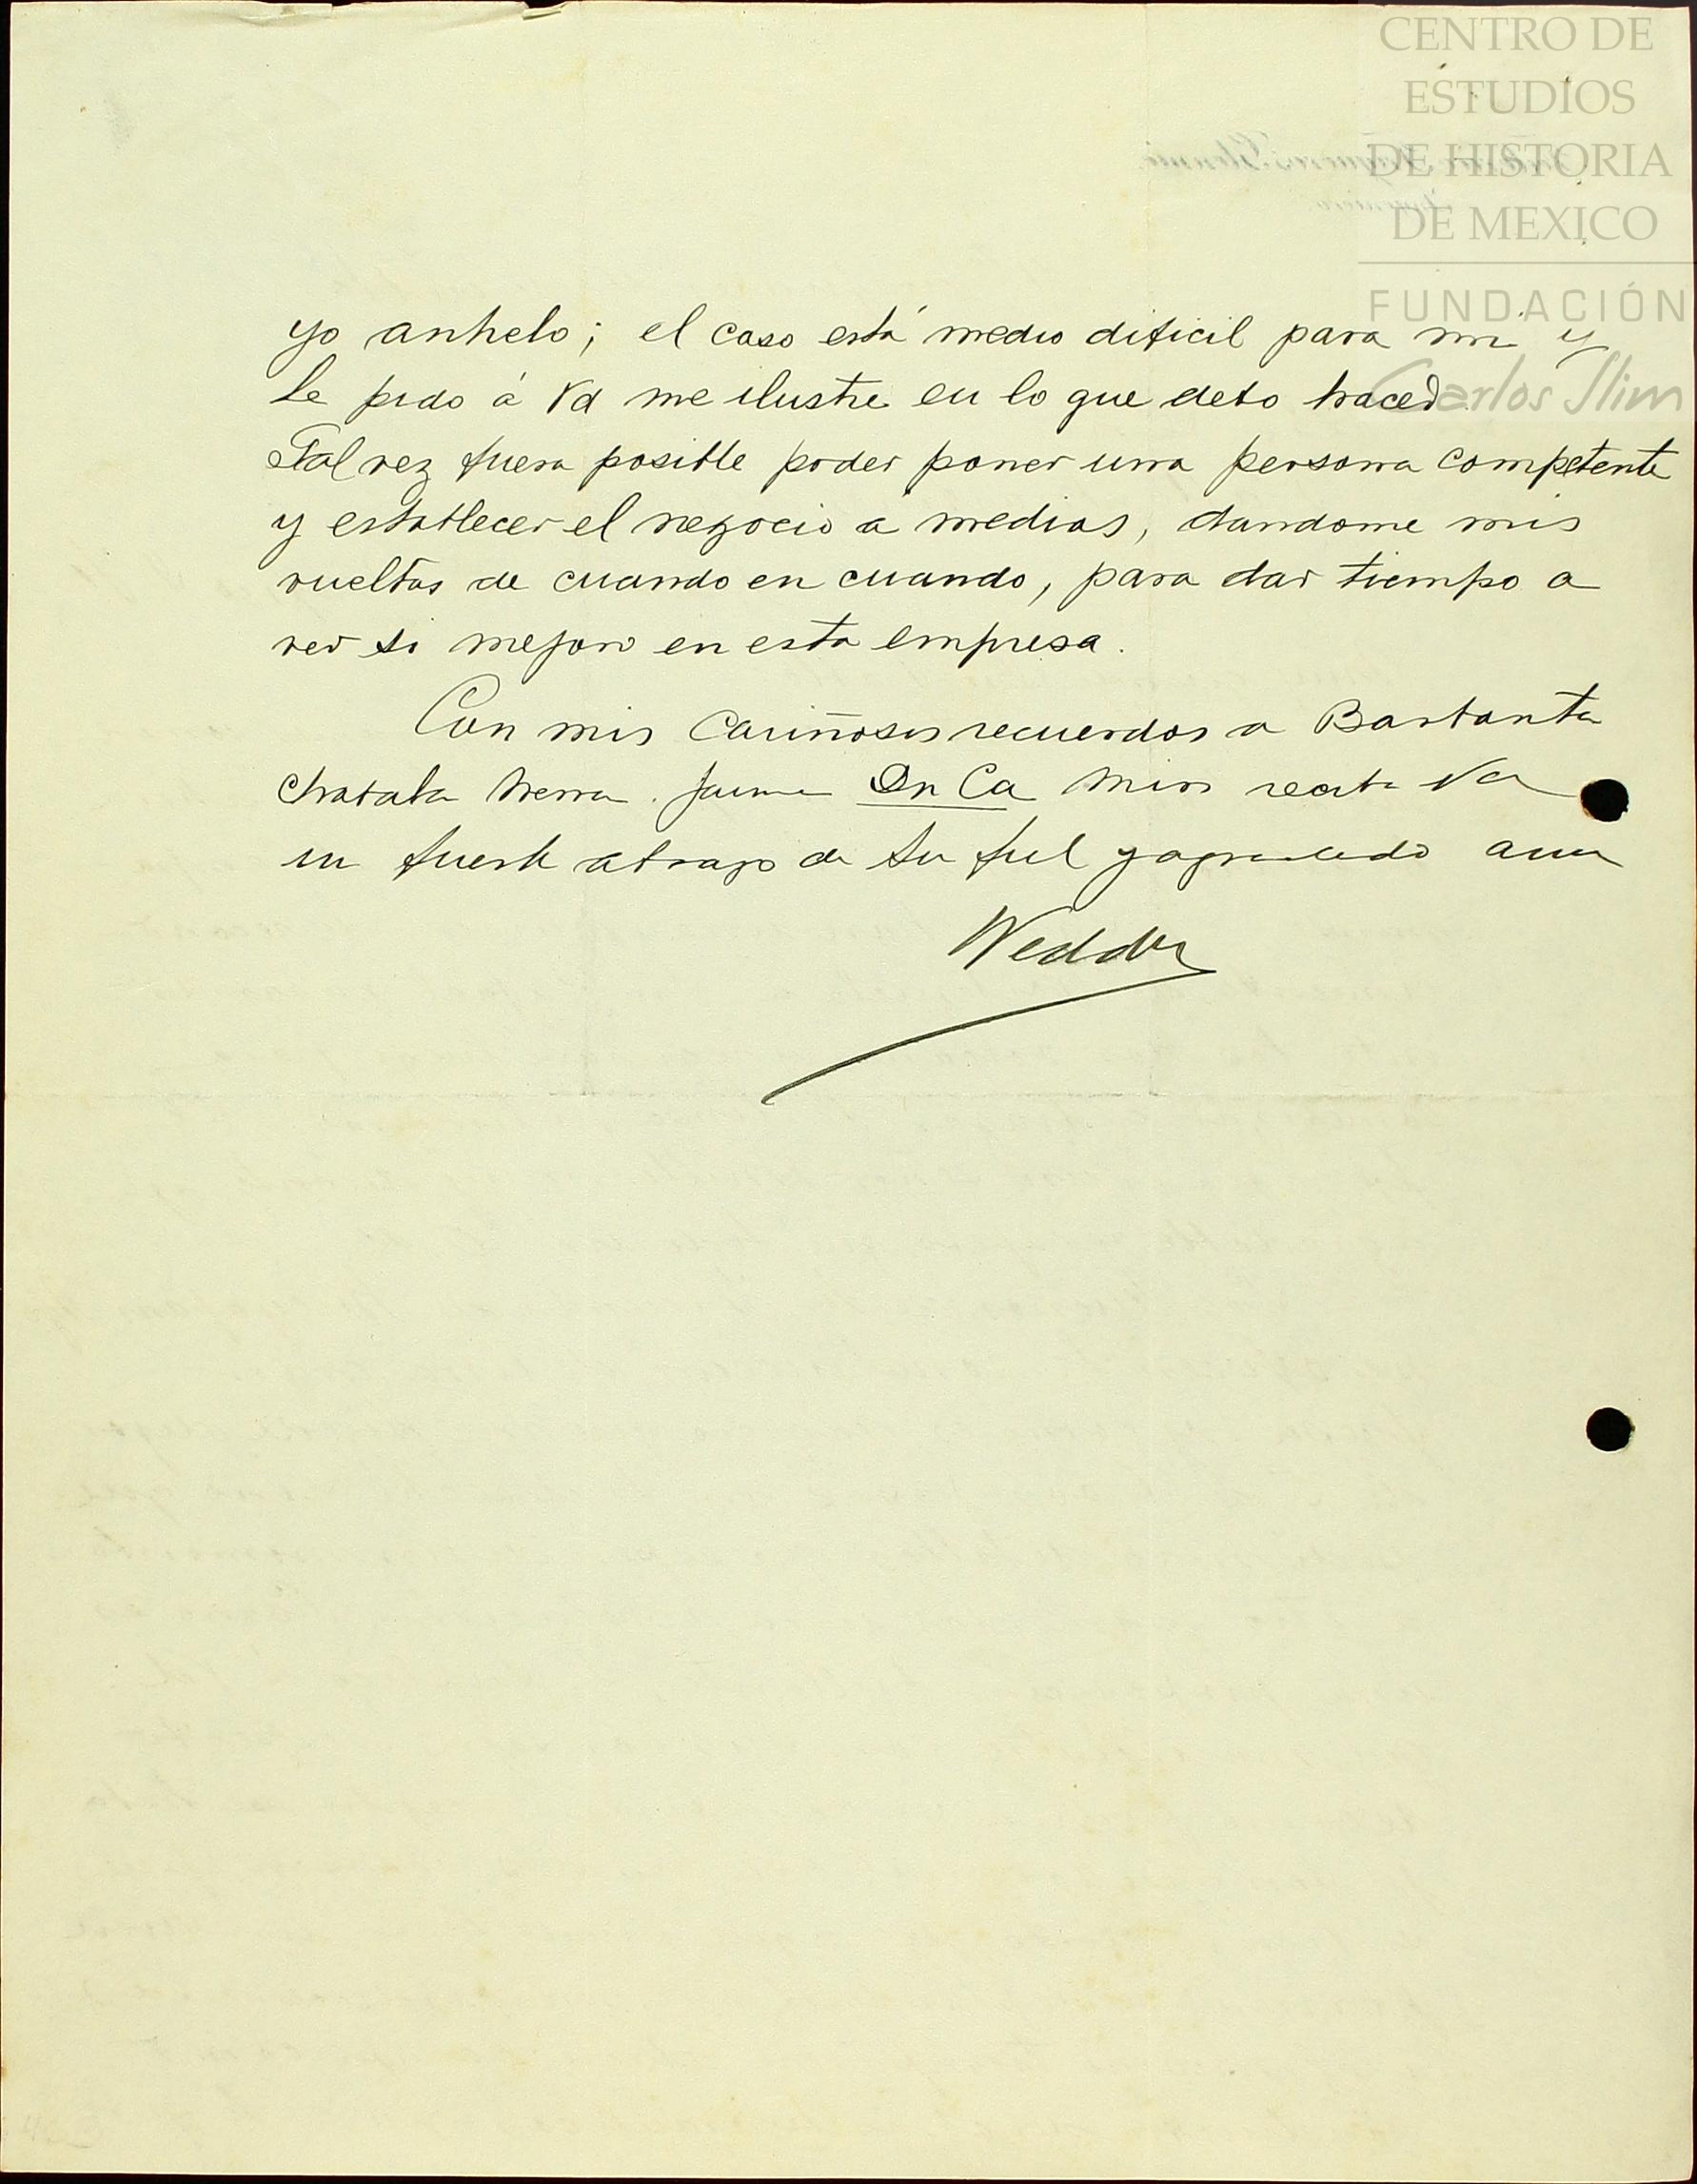 CENTRO DE
ESTUDIOS
DE HISTORIA
DE MEXICO
FUNDACIÓN
Carlos Slim
yo anhelo; el caso está medio dificil para mi y
le pido á Vd me ilustre en lo que debo hacer.
Tal vez fuera posible poder poner una persona competente
y establecer el negocio a medias, dandome mis
vueltas de cuando en cuando, para dar tiempo a
ver si mejoro en esta empresa.
Con mis cariñosos recuerdos a
Jaime reciba Vd
un fuerte abrazo de su fiel y agradecido